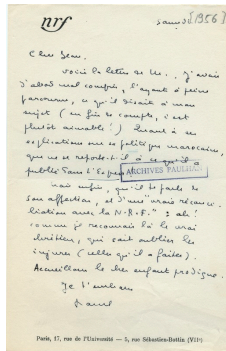 nrf
samedi [1956]
Cher Jean,
voici la lettre de M.. J'avais
d'abord mal compris, l'ayant à peine
parcourue, ce qu'il disait à mon
sujet (en fin de compte, c'est
plutôt aimable!) Quant à ses
explications sur sa politique marocaine,
que ne se reporte-t-il à ce qu'il a
publié dans l'Express
ARCHIVES PAULHAN
Mais enfin, qu'il te parle de
son affection, et d'une "vraie réconci-
liation avec la N.R.F." : ah!
comme je reconnais là le vrai
chrétien, qui sait oublier les
injures (celles qu'il a faites).
Accueillons le cher enfant prodigue.
Je t'embrasse
Marcel
Paris, 17, rue de l'Université — 5, rue Sébastien-Bottin (VIIe)